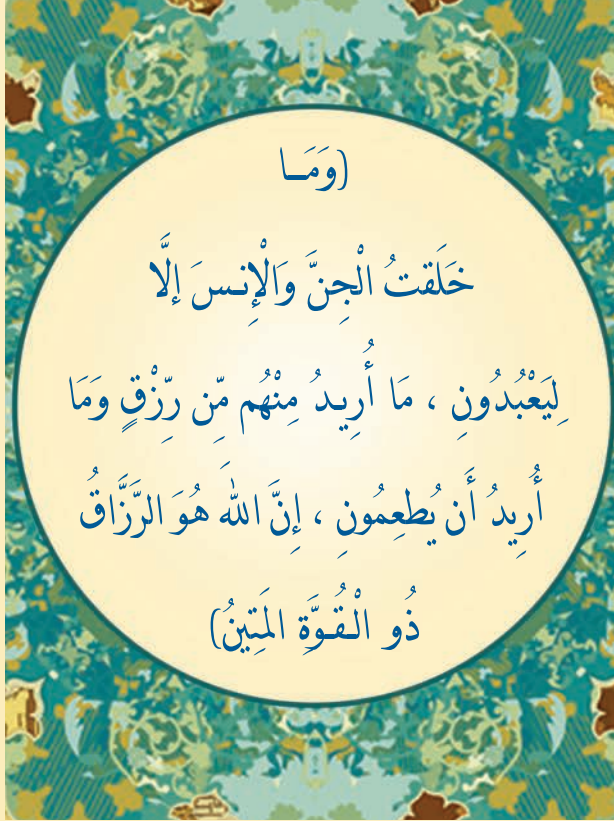 (وَمَـا
خَلَقتُ الْجِنَّ وَالْإِنـسَ إلَّا
لِيَعْبُدُونِ ، مَا أُرِيـدُ مِنْهُم مِّن رِّزْقٍ وَمَا
أُرِيدُ أَن يُطعِمُونِ ، إِنَّ اللهَ هُوَ الرَّزَّاقُ
ذُو الْـقُـوَّةِ المَتِينُ)